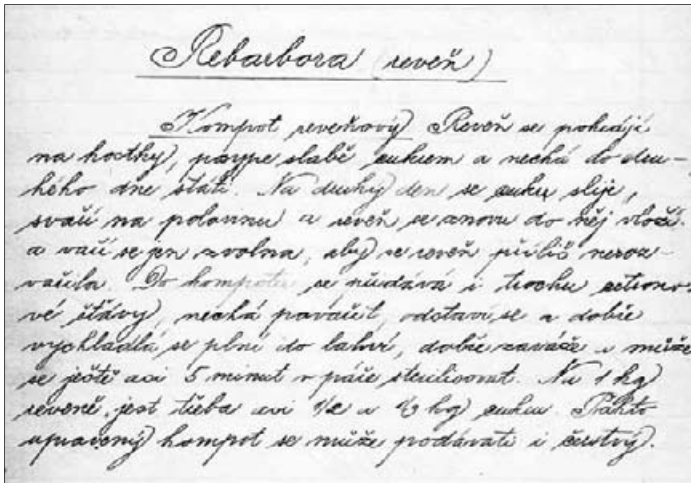 Rebarbora (reveň)
Kompot reveňový) Reveň se pokrájí
na kostky, posype slabě cukrem a nechá do dru-
hého dne státi. Na druhý den se cukr slije,
svaří na polovinu a reveň se znovu do něj vloží
a vaří se jen zvolna, aby se reveň příliš neroz-
vařila. Do kompotu se přidává i trochu citrono-
vé šťávy, nechá povařit, odstaví se a dobře
vychladlá se plní do lahví, dobře zaváže a může
se ještě asi 5 minut v páře sterilisovat. Na 1 kg
reveně jest třeba asi 1/2 a 1/3 kg cukru. Takto
upravený kompot se může podávati i čerstvý.